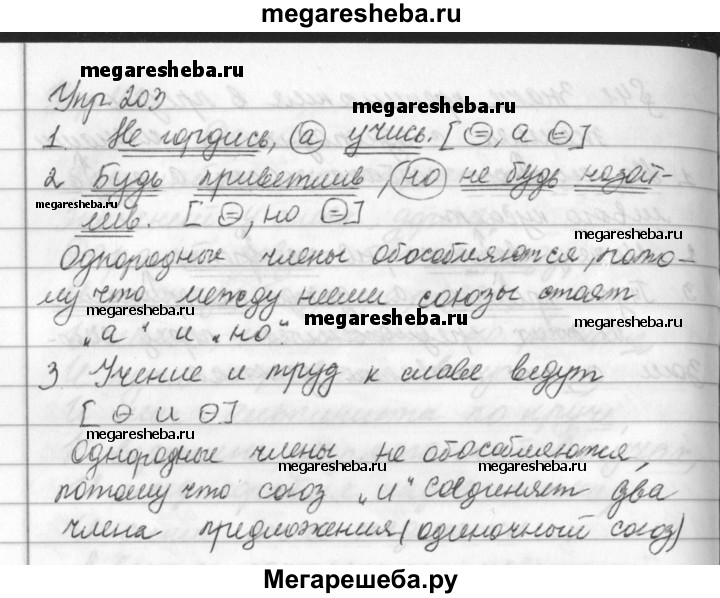 megaresheba.ru
megaresheba.ru
Упр. 203
megaresheba.ru
1. Не гордись, а учись. [ = , а = ]
2. Будь приветлив, но не будь назой-
megaresheba.ru
лив. [ = , но = ]
megaresheba.ru
Однородные члены обособляются, пото-
му что между ними союзы стоят
megaresheba.ru
megaresheba.ru
megaresheba.ru
„а“ и „но“.
3 Учение и труд к славе ведут
[ – и – ]
megaresheba.ru
Однородные члены не обособляются,
megaresheba.ru
megaresheba.ru
потому что союз „и“ соединяет два
члена предложения (одиночный союз)
Мегарешеба.ру